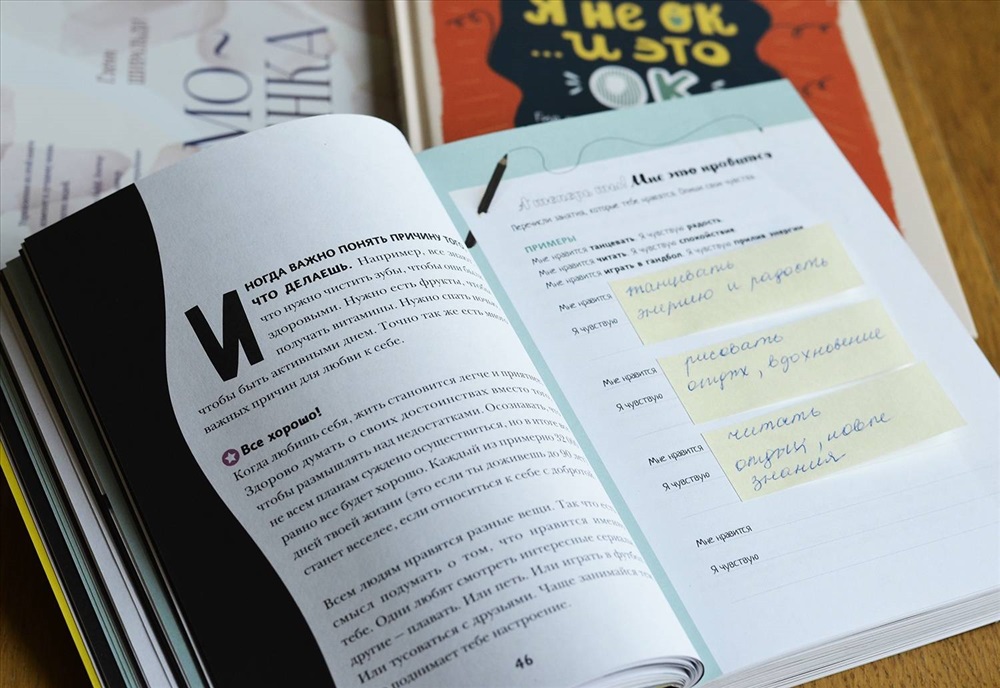 Я НЕ ОК
...И ЭТО
ОК
ИНОГДА ВАЖНО ПОНЯТЬ ПРИЧИНУ ТОГО,
ЧТО ДЕЛАЕШЬ. Например, все знают,
что нужно чистить зубы, чтобы они были
здоровыми. Нужно есть фрукты, чтобы
получать витамины. Нужно спать ночью,
чтобы быть активными днем. Точно так же есть много
важных причин для любви к себе.
Все хорошо!
Когда любишь себя, жить становится легче и приятнее.
Здорово думать о своих достоинствах вместо того,
чтобы размышлять над недостатками. Осознавать, что
не всем планам суждено осуществиться, но в итоге все
равно все будет хорошо. Каждый из примерно 32
дней твоей жизни (это если ты доживешь до 90 лет)
станет веселее, если относиться к себе с добротой.
Всем людям нравятся разные вещи. Так что есть
смысл подумать о том, что нравится именно
тебе. Одни любят смотреть интересные сериалы,
другие — плавать. Или петь. Или играть в футбол.
Или тусоваться с друзьями. Чаще занимайся тем,
поднимает тебе настроение.
46
А теперь ты! Мне это нравится
Перечисли занятия, которые тебе нравятся. Опиши свои чувства.
ПРИМЕРЫ
Мне нравится танцевать. Я чувствую радость.
Мне нравится читать. Я чувствую спокойствие.
Мне нравится играть в гандбол. Я чувствую прилив энергии
Мне нравится танцевать
Я чувствую энергию и радость
Мне нравится рисовать
Я чувствую отдых, вдохновение
Мне нравится читать
Я чувствую отдых, новые
знания
Мне нравится
Я чувствую